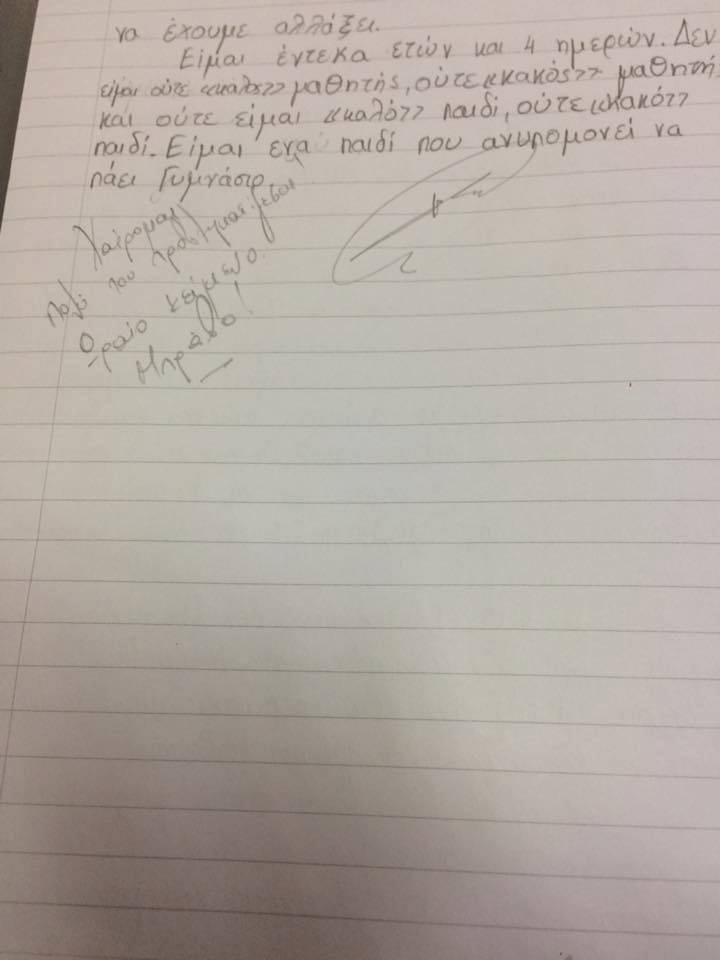 να έχουμε αλλάξει.
Είμαι έντεκα ετών και 4 ημερών. Δεν
είμαι ούτε «καλός» μαθητής, ούτε «κακός» μαθητής
και ούτε είμαι «καλό» παιδί, ούτε «κακό»
παιδί. Είμαι ενα παιδί που ανυπομονεί να
πάει Γυμνάσιο.
Χαίρομαι
πολύ που προβληματίζεσαι
Ωραίο κείμενο.
Μπράβο!